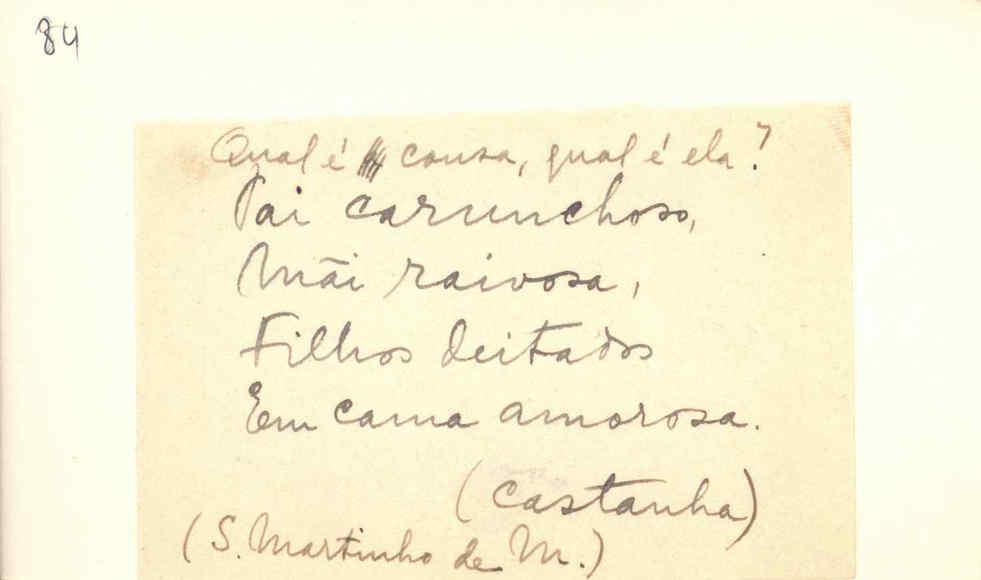 84
Qual é cousa, qual é ela?
Pai carunchoso,
Mãi raivosa,
Filhos deitados
Em cama amorosa.
(castanha)
(S. Martinho de M.)